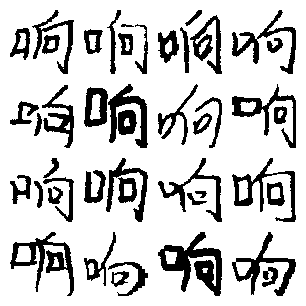 响响响响
响响响响
响响响响
响响响响